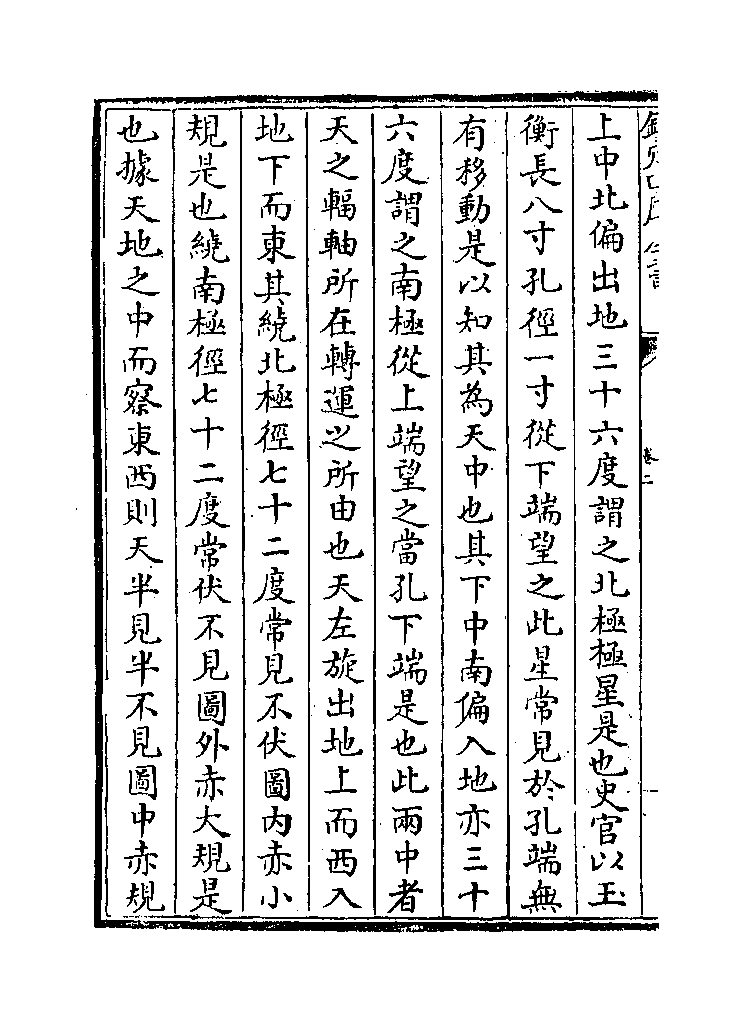 上中北偏出地三十六度謂之北極極星是也史官以玉
衡長八寸孔徑一寸從下端望之此星常見於孔端無
有移動是以知其為天中也其下中南偏入地亦三十
六度謂之南極從上端望之當孔下端是也此兩中者
天之輻軸所在轉運之所由也天左旋出地上而西入
地下而東其繞北極徑七十二度常見不伏圖內赤小
規是也繞南極徑七十二度常伏不見圖外赤大規是
也據天地之中而察東西則天半見半不見圖中赤規
卷二